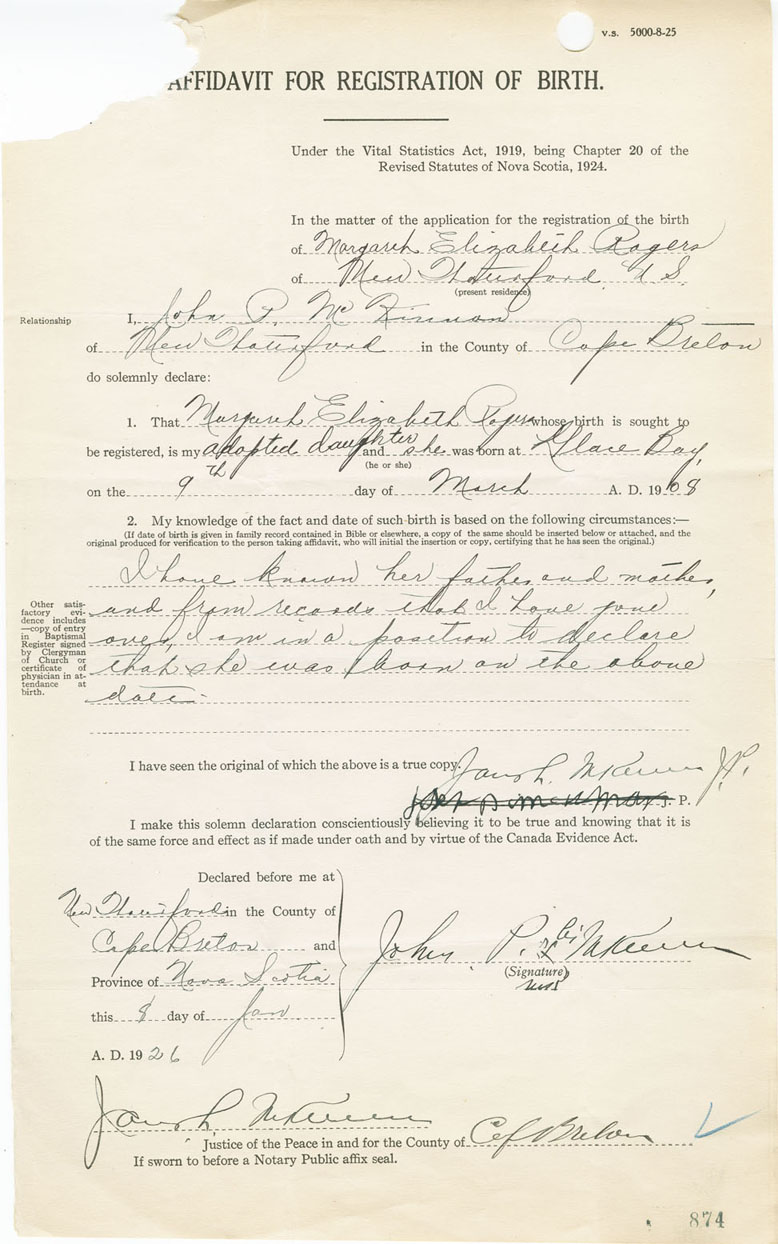 v.s. 5000-8-25
AFFIDAVIT FOR REGISTRATION OF BIRTH.
Under the Vital Statistics Act, 1919, being Chapter 20 of the
Revised Statutes of Nova Scotia, 1924.
In the matter of the application for the registration of the birth
of Margaret Elizabeth Rogers
of New Waterford, N.S.
(present residence)
Relationship
I, John P. McKinnon
of New Waterford in the County of Cape Breton
do solemnly declare:
1. That Margaret Elizabeth Rogers whose birth is sought to
be registered, is my adopted daughter and she was born at Glace Bay,
(he or she)
on the 9th day of March A. D. 1908
2. My knowledge of the fact and date of such birth is based on the following circumstances:—
(If date of birth is given in family record contained in Bible or elsewhere, a copy of the same should be inserted below or attached, and the
original produced for verification to the person taking affidavit, who will initial the insertion or copy, certifying that he has seen the original.)
I have known her father and mother,
and from records that I have gone
over, I am in a position to declare
that she was born on the above
date.
Other satis-
factory evi-
dence includes
—copy of entry
in Baptismal
Register signed
by Clergyman
of Church or
certificate of
physician in at-
tendance at
birth.
I have seen the original of which the above is a true copy. J.P.
J. P.
I make this solemn declaration conscientiously believing it to be true and knowing that it is
of the same force and effect as if made under oath and by virtue of the Canada Evidence Act.
Declared before me at
New Waterford in the County of
Cape Breton and
Province of Nova Scotia
this 8 day of Jan
A. D. 1926
John P. his X
(Signature)
mark
Justice of the Peace in and for the County of C Breton
If sworn to before a Notary Public affix seal.
874